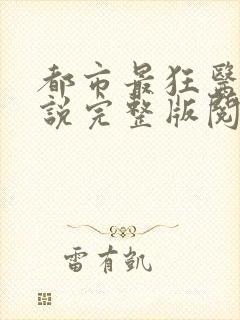 都市最狂醫
說完整版閱
雷有凱